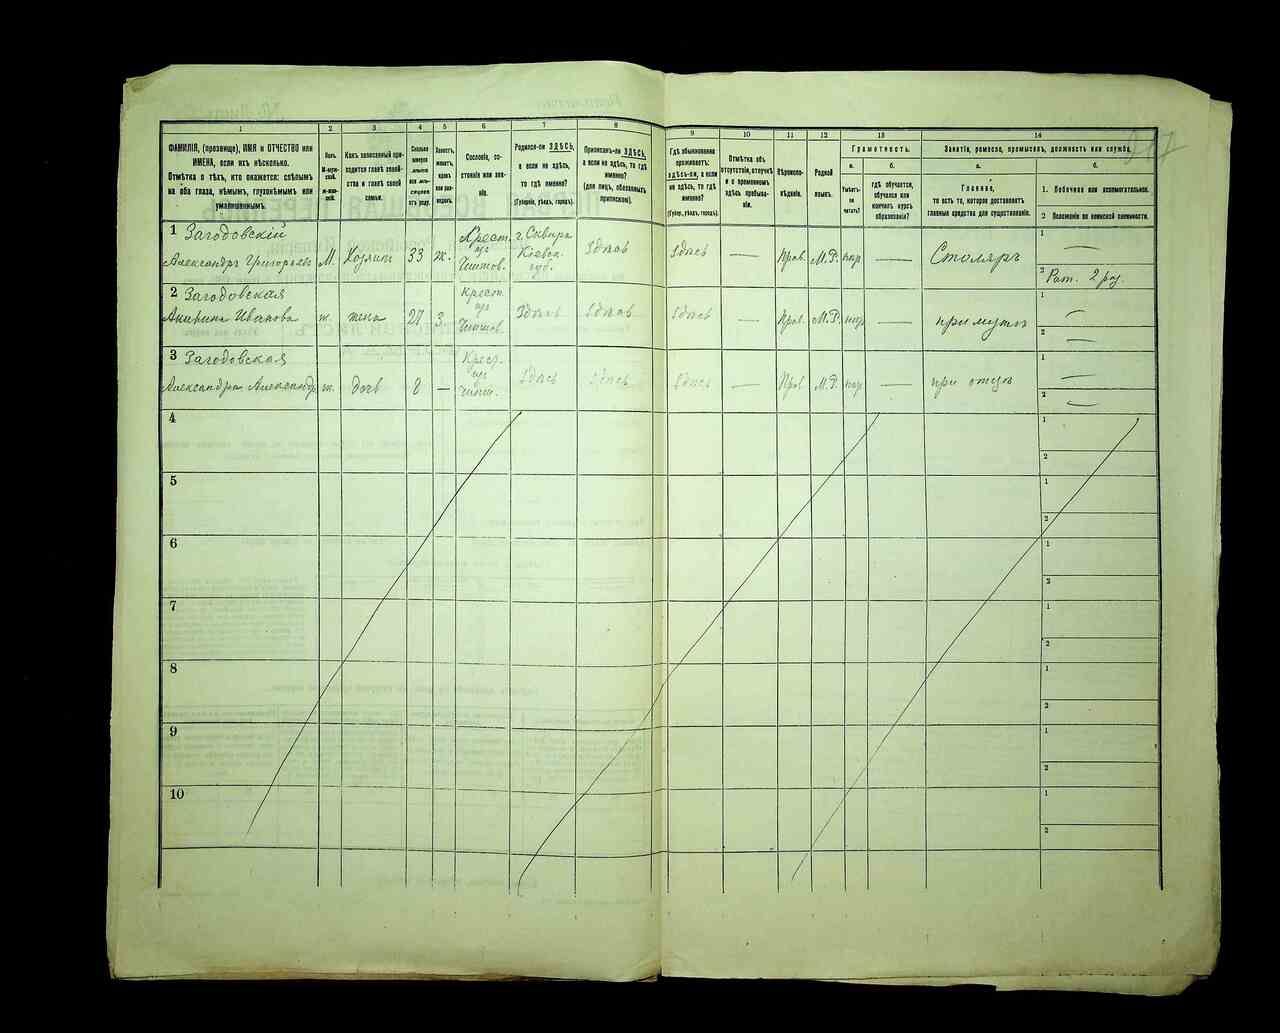 1
2
3
4
5
6
7
8
9
10
11
12
13
14
ФАМИЛІЯ, (прозвище), ИМЯ и ОТЧЕСТВО или
ИМЕНА, если ихъ нѣсколько.
Отмѣтка о тѣхъ, кто окажется: слѣпымъ
на оба глаза, нѣмымъ, глухонѣмымъ или
умалишеннымъ.
Полъ.
М-муж-
ской.
ж-жен-
скій.
Какъ записанный при-
ходится главѣ хозяй-
ства и главѣ своей
семьи.
Сколько
минуло
лѣтъ
или мѣ-
сяцевъ
отъ роду.
Холостъ,
женатъ,
вдовъ
или раз-
веденъ.
Сословіе, со-
стояніе или зва-
ніе.
Родился-ли ЗДѢСЬ,
а если не здѣсь,
то гдѣ именно?
(Губернія, уѣздъ, городъ).
Приписанъ-ли ЗДѢСЬ,
а если не здѣсь, то гдѣ
именно?
(для лицъ, обязанныхъ
припискою).
Гдѣ обыкновенно
проживаетъ:
здѣсь-ли, а если
не здѣсь, то гдѣ
именно?
(Губер., уѣздъ, городъ).
Отмѣтка объ
отсутствіи, отлучкѣ
и о временномъ
здѣсь пребыва-
ніи.
Вѣроиспо-
вѣданіе.
Родной
языкъ.
Грамотность.
а.
б.
Умѣетъ-
ли
читать?
гдѣ обучается,
обучался или
кончилъ курсъ
образованія?
Занятіе, ремесло, промыселъ, должность или служба.
а.
б.
Главное,
то есть то, которое доставляетъ
главныя средства для существованія.
1. Побочное или вспомогательное.
2 Положеніе по воинской повинности.
1 Загодовскій
Александръ Григорьевъ М. Хозяинъ 33 ж. Крест. г. Сквира Кіевск. губ. Здѣсь Здѣсь — Прав. М.Р. — Столяръ
1 —
2 Рат. 2 раз.
2 Загодовская
Ивановна ж. жена 27 З. Крест. Здѣсь Здѣсь Здѣсь — Прав. М.Р. — при мужѣ
1 —
2 —
3 Загодовская
Александра Александр. ж. дочь 8 — Крест. Здѣсь Здѣсь Здѣсь — Прав. М.Р. — при отцѣ
1 —
2 —
4
1
2
5
1
2
6
1
2
7
1
2
8
1
2
9
1
2
10
1
2